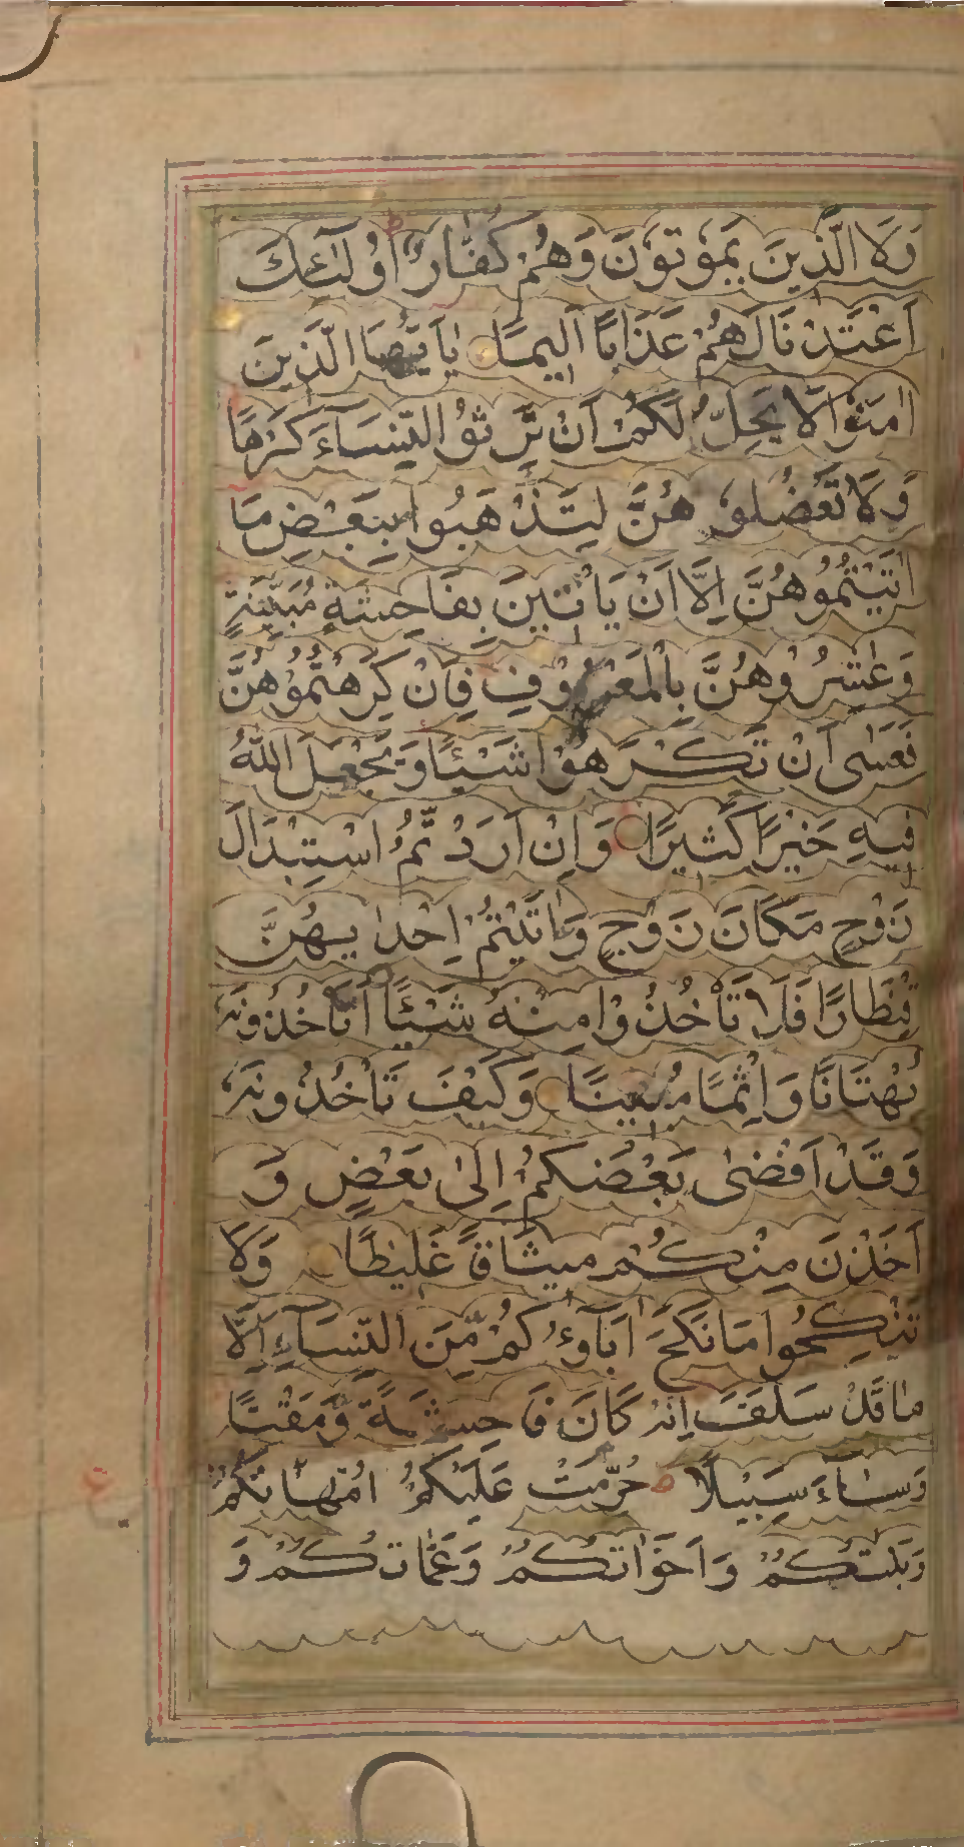 وَلَا الَّذِينَ يَمُوتُونَ وَهُمْ كُفَّارٌ اُولٰٓئِكَ
اَعْتَدْنَا لَهُمْ عَذَابًا اَلِيمًا يٰٓاَيُّهَا الَّذِينَ
اٰمَنُوا لَا يَحِلُّ لَكُمْ اَنْ تَرِثُوا النِّسَآءَ كَرْهًا
وَلَا تَعْضُلُوهُنَّ لِتَذْهَبُوا بِبَعْضِ مَا
اٰتَيْتُمُوهُنَّ اِلَّا اَنْ يَاْتِينَ بِفَاحِشَةٍ مُبَيِّنَةٍ
وَعَاشِرُوهُنَّ بِالْمَعْرُوفِ فَاِنْ كَرِهْتُمُوهُنَّ
فَعَسٰى اَنْ تَكْرَهُوا شَيْئًا وَيَجْعَلَ اللّٰهُ
فِيهِ خَيْرًا كَثِيرًا وَاِنْ اَرَدْتُمُ اسْتِبْدَالَ
زَوْجٍ مَكَانَ زَوْجٍ وَاٰتَيْتُمْ اِحْدٰيهُنَّ
قِنْطَارًا فَلَا تَأْخُذُوا مِنْهُ شَيْئًا اَتَأْخُذُونَهُ
بُهْتَانًا وَاِثْمًا مُبِينًا وَكَيْفَ تَأْخُذُونَهُ
وَقَدْ اَفْضٰى بَعْضُكُمْ اِلٰى بَعْضٍ وَ
اَخَذْنَ مِنْكُمْ مِيثَاقًا غَلِيظًا وَلَا
تَنْكِحُوا مَا نَكَحَ اٰبَآؤُكُمْ مِّنَ النِّسَآءِ اِلَّا
مَا قَدْ سَلَفَ اِنَّهُ كَانَ فَاحِشَةً وَّمَقْتًا
وَسَآءَ سَبِيلًا حُرِّمَتْ عَلَيْكُمْ اُمَّهَاتُكُمْ
وَبَنٰتُكُمْ وَاَخَوَاتُكُمْ وَعَمَّاتُكُمْ وَ
ع